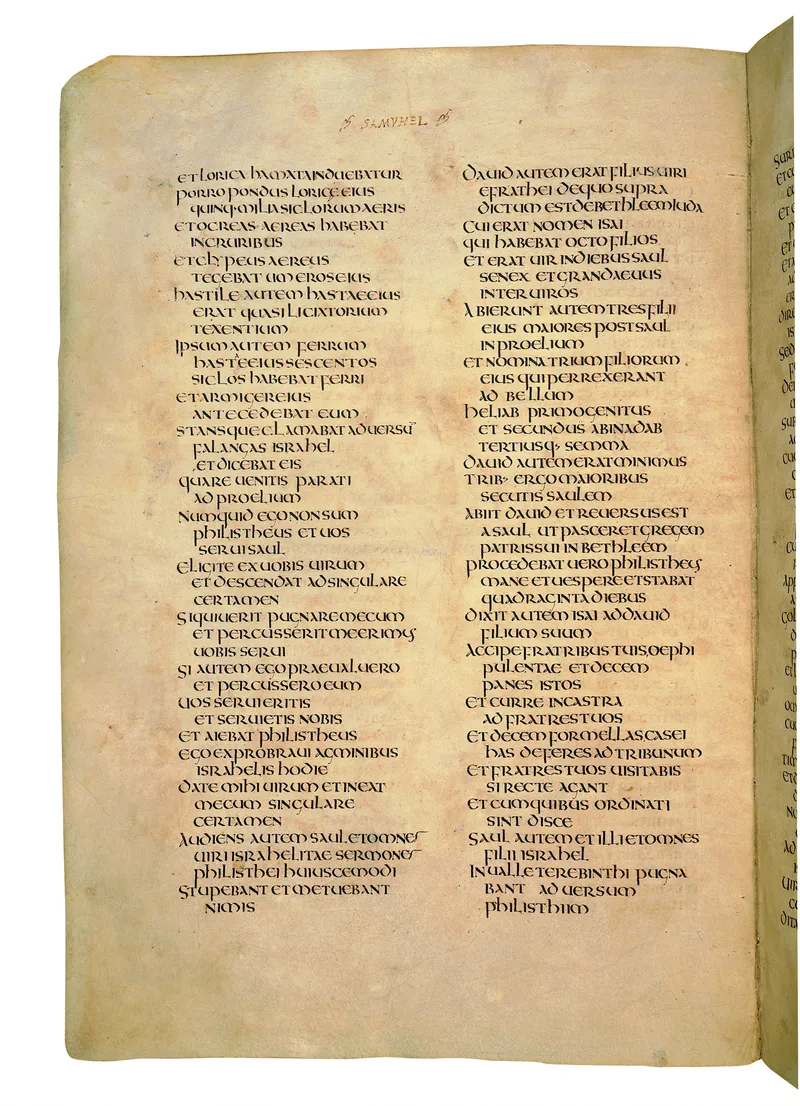 SAMUHEL
ET LORICA HAMATA INDUEBATUR
PORRO PONDUS LORICE EIUS
QUINQ· MILIA SICLORUM AERIS
ET OCREAS AEREAS HABEBAT
IN CRURIBUS
ET CLYPEUS AEREUS
TEGEBAT UMEROS EIUS
HASTILE AUTEM HASTAE EIUS
ERAT QUASI LICIATORIUM
TEXENTIUM
IPSUM AUTEM FERRUM
HASTE EIUS SESCENTOS
SICLOS HABEBAT FERRI
ET ARMIGER EIUS
ANTECEDEBAT EUM
STANSQUE CLAMABAT ADUERSŪ
FALANGAS ISRAHEL
ET DICEBAT EIS
QUARE UENITIS PARATI
AD PROELIUM
NUMQUID EGO NON SUM
PHILISTHEUS ET UOS
SERUI SAUL
ELIGITE EX UOBIS UIRUM
ET DESCENDAT AD SINGULARE
CERTAMEN
SI QUIUERIT PUGNARE MECUM
ET PERCUSSERIT ME ERIMUS
UOBIS SERUI
SI AUTEM EGO PRAEUALUERO
ET PERCUSSERO EUM
UOS SERUI ERITIS
ET SERUIETIS NOBIS
ET AIEBAT PHILISTHEUS
EGO EXPROBRAUI AGMINIBUS
ISRAHELIS HODIE
DATE MIHI UIRUM ET INEAT
MECUM SINGULARE
CERTAMEN
AUDIENS AUTEM SAUL ET OMNES
UIRI ISRAHELITAE SERMONES
PHILISTHEI HUIUSCEMODI
STUPEBANT ET METUEBANT
NIMIS
DAUID AUTEM ERAT FILIUS UIRI
EFRATHEI DE QUO SUPRA
DICTUM EST DE BETHLEEM IUDA
CUI ERAT NOMEN ISAI
QUI HABEBAT OCTO FILIOS
ET ERAT UIR IN DIEBUS SAUL
SENEX ET GRANDAEUUS
INTER UIROS
ABIERUNT AUTEM TRES FILII
EIUS MAIORES POST SAUL
IN PROELIUM
ET NOMINA TRIUM FILIORUM
EIUS QUI PERREXERANT
AD BELLUM
HELIAB PRIMOGENITUS
ET SECUNDUS ABINADAB
TERTIUSQ· SEMMA
DAUID AUTEM ERAT MINIMUS
TRIB· ERGO MAIORIBUS
SECUTIS SAULEM
ABIIT DAUID ET REUERSUS EST
A SAUL UT PASCERET GREGEM
PATRIS SUI IN BETHLEEM
PROCEDEBAT UERO PHILISTHEUS
MANE ET UESPERE ET STABAT
QUADRAGINTA DIEBUS
DIXIT AUTEM ISAI AD DAUID
FILIUM SUUM
ACCIPE FRATRIBUS TUIS OEPHI
PULENTAE ET DECEM
PANES ISTOS
ET CURRE IN CASTRA
AD FRATRES TUOS
ET DECEM FORMELLAS CASEI
HAS DEFERES AD TRIBUNUM
ET FRATRES TUOS UISITABIS
SI RECTE AGANT
ET CUM QUIBUS ORDINATI
SINT DISCE
SAUL AUTEM ET ILLI ET OMNES
FILII ISRAHEL
IN UALLE TEREBINTHI PUGNA
BANT ADUERSUM
PHILISTHIIM